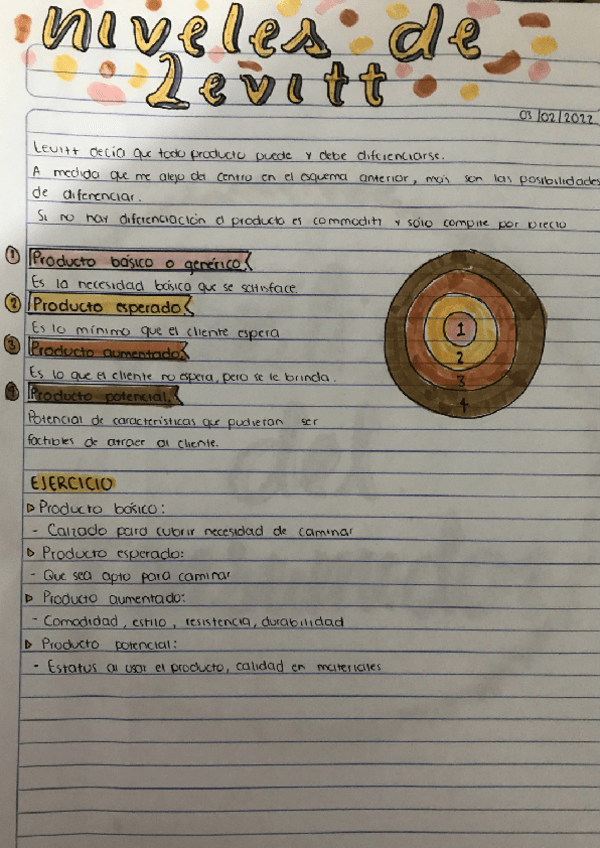 niveles de
Levitt
03/02/2022
Levitt decía que todo producto puede y debe diferenciarse.
A medida que me alejo del centro en el esquema anterior, más son las posibilidades
de diferenciar.
Si no hay diferenciación el producto es commoditi y sólo compite por precio
1 Producto básico o genérico.
Es la necesidad básica que se satisface.
2 Producto esperado
Es lo mínimo que el cliente espera
3 Producto aumentado.
Es lo que el cliente no espera, pero se le brinda.
4 Producto potencial.
Potencial de características que pudieran ser
factibles de atraer al cliente.
1
2
3
4
EJERCICIO
Producto básico:
- Calzado para cubrir necesidad de caminar
Producto esperado:
- Que sea apto para caminar
Producto aumentado:
- Comodidad, estilo, resistencia, durabilidad
Producto potencial:
- Estatus al usar el producto, calidad en materiales